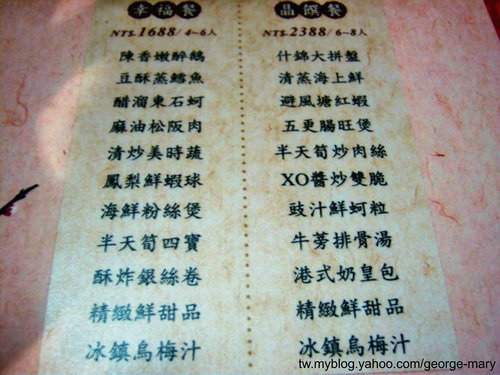 幸福餐
NT$.1688/4~6人
陳香嫩醉鵝
豆酥蒸鱈魚
醋溜東石蚵
麻油松阪肉
清炒美時蔬
鳳梨鮮蝦球
海鮮粉絲煲
半天筍四寶
酥炸銀絲卷
精緻鮮甜品
冰鎮烏梅汁
晶饌餐
NT$.2388/6~8人
什錦大拼盤
清蒸海上鮮
避風塘紅蝦
五更腸旺煲
半天筍炒肉絲
XO醬炒雙脆
豉汁鮮蚵粒
牛蒡排骨湯
港式奶皇包
精緻鮮甜品
冰鎮烏梅汁
tw.myblog.yahoo.com/george-mary